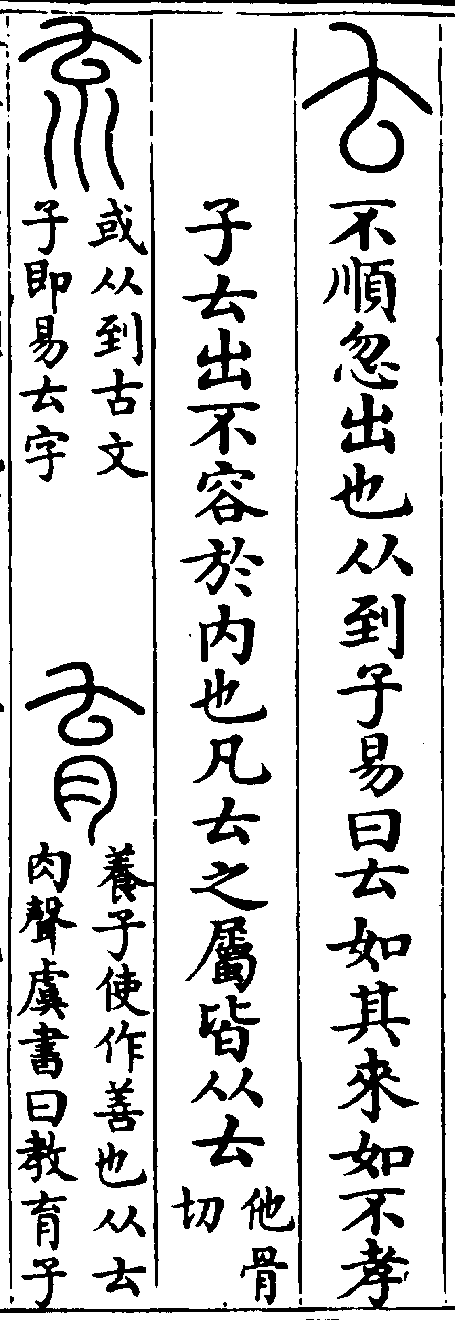 𠫓不順忽出也从到子易曰𠫓如其來如不孝
子𠫓出不容於内也凡𠫓之屬皆从𠫓
他骨
切
㐬
或从到古文
子即易𠫓字
育
養子使作善也从𠫓
肉聲虞書曰教育子